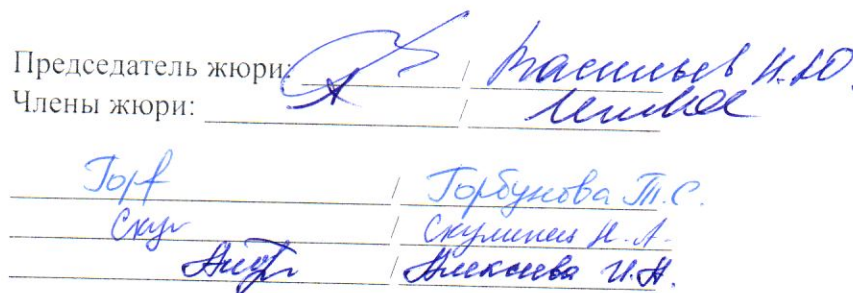 Председатель жюри: / Васильев Н.Ю.
Члены жюри: /
Горб / Горбунова Т.С.
Скул / Скулинец Н.А.
/ Алексеева И.Н.